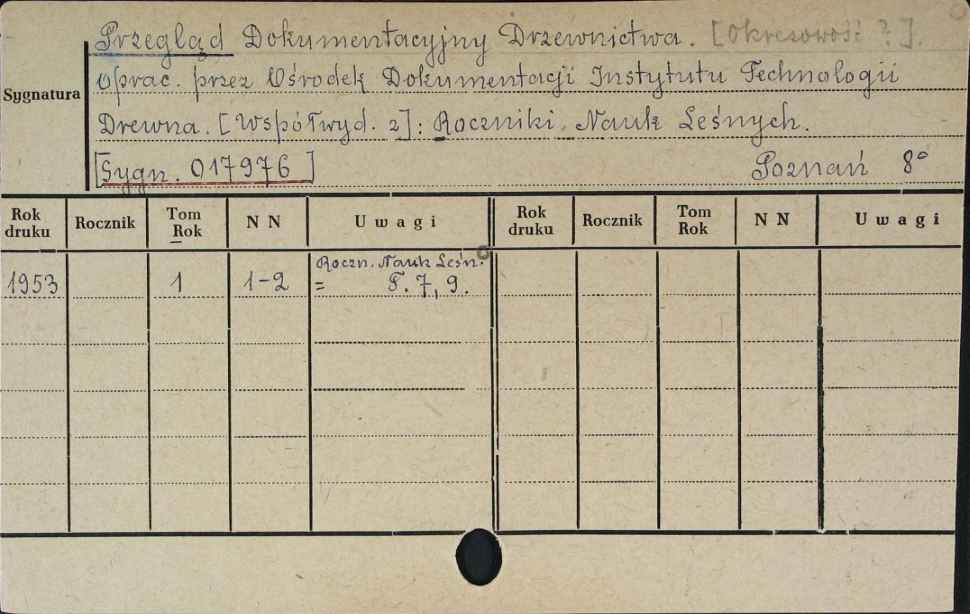 Przegląd Dokumentacyjny Drzewnictwa. [Okresowość ?].
Sygnatura
oprac. przez Ośrodek Dokumentacji Instytutu Technologii
Drewna. [Współwyd. z]: Roczniki Nauk Leśnych.
[Sygn. 017976] Poznań 8°
Rok druku Rocznik Tom Rok N N Uwagi Rok druku Rocznik Tom Rok N N Uwagi
Roczn. Nauk Leśn.
1953 1 1-2 = T. 7, 9.